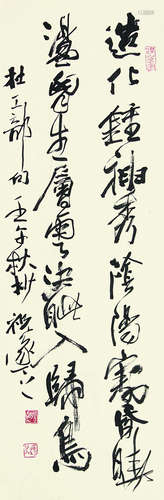 造化鍾神秀陰陽割昏曉
盪胸生層雲決眦入歸鳥
杜工部句壬午秋杪